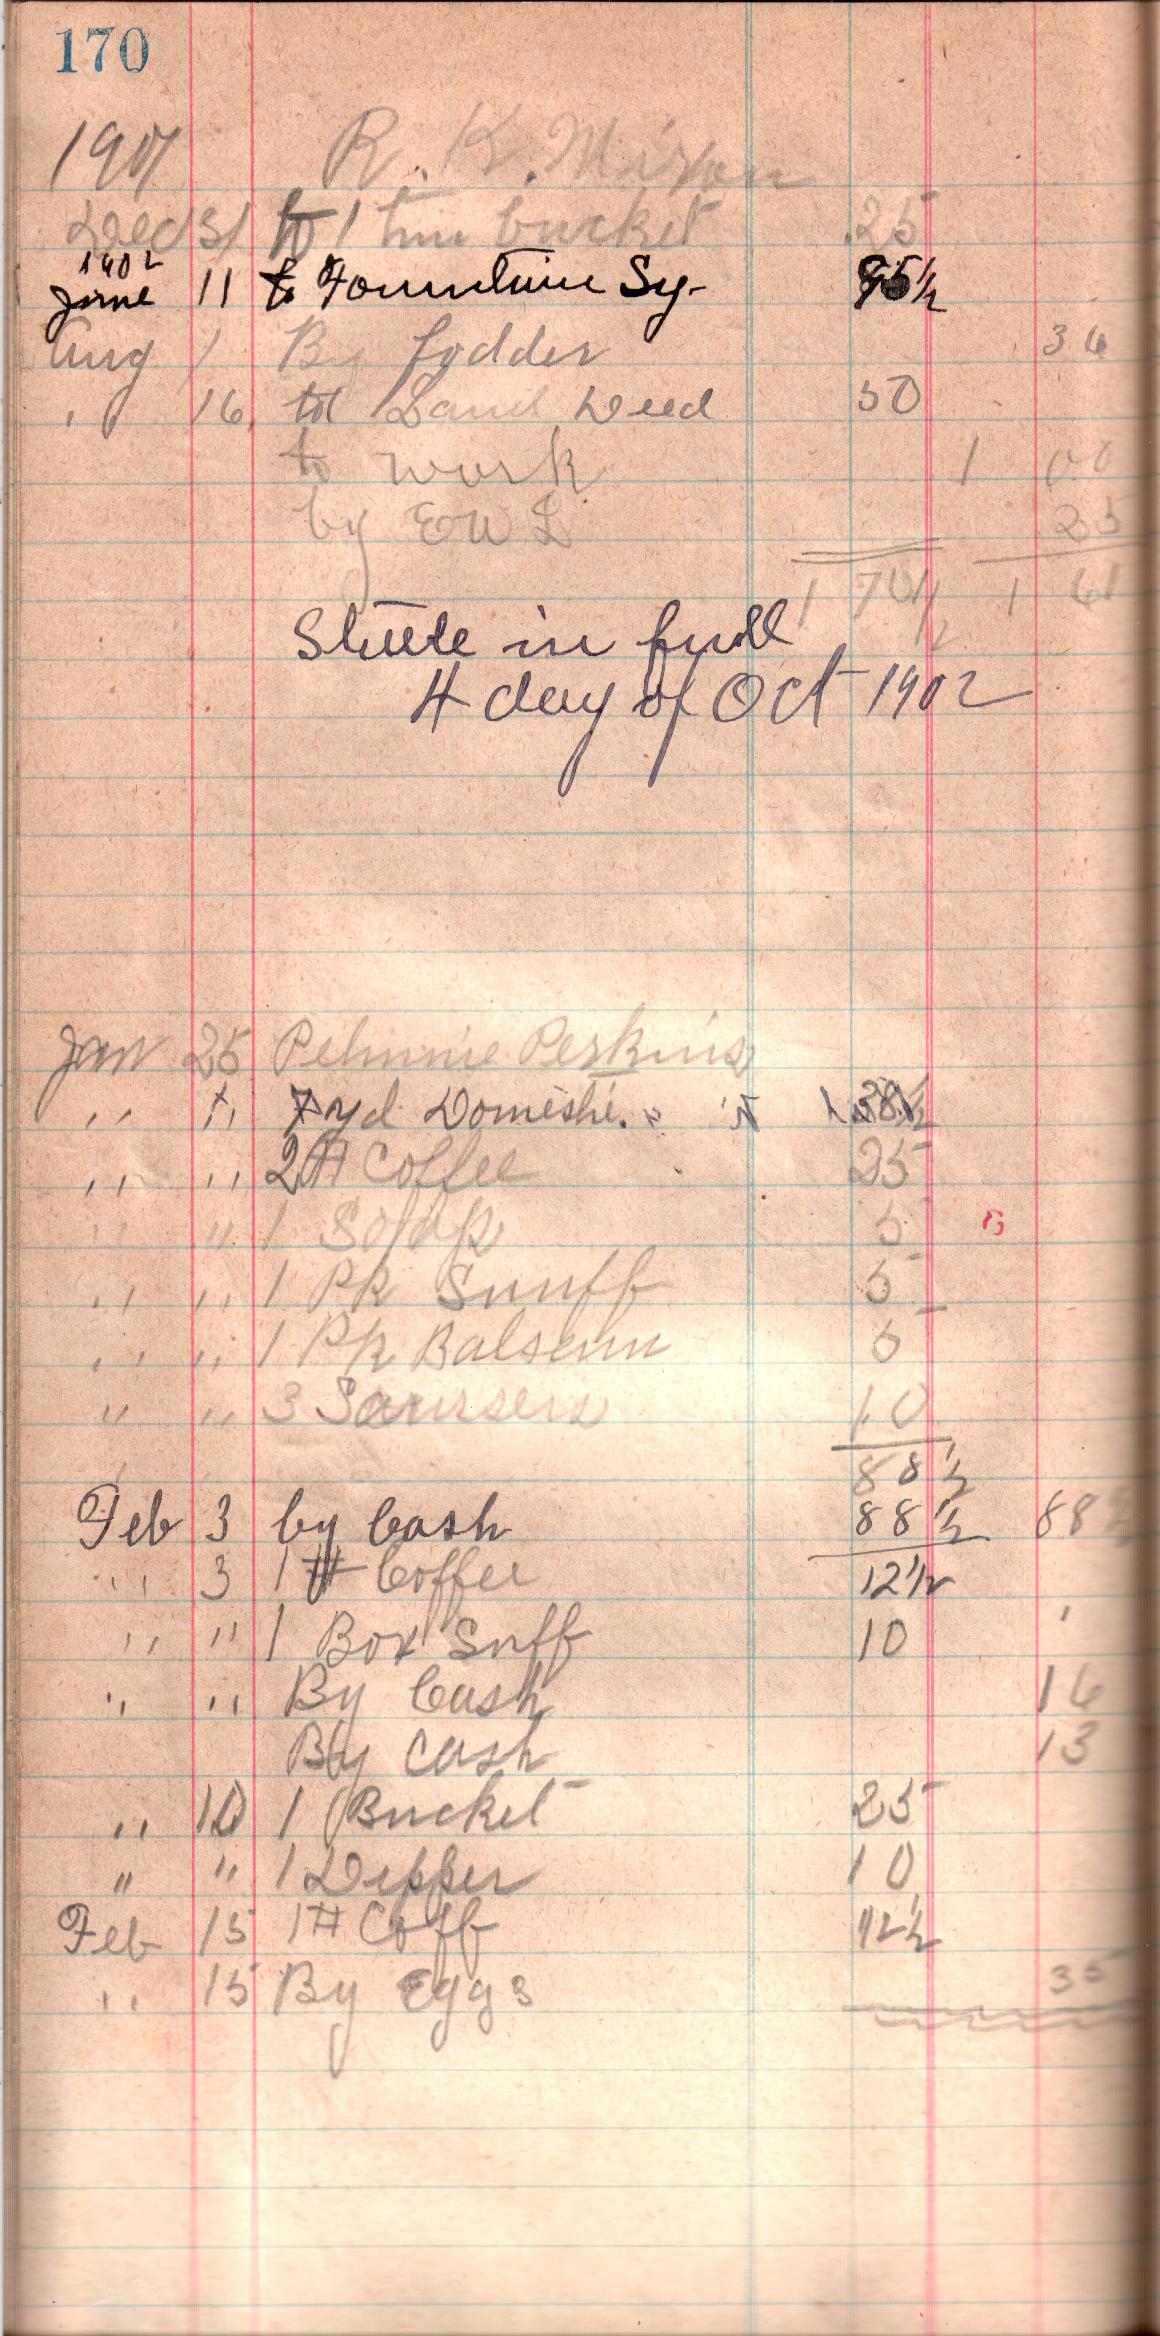 170
1901 R. K. Mixon
Dec 31 to 1 tin bucket .25
1902
June 11 to Fountain Sy- 95 1/2
Aug 1 By fodder 36
" 16 to Land Deed 50
to work 1 00
by EWL 25
1 70 1/2 1 61
Settle in full
4 day of Oct 1902
Jan 25 Perkins
" " 7 yd Domestic 38 1/2
" " 2 # Coffee 25
" " 1 Soap 5
" " 1 Pk Snuff 5
" " 1 Pk Balsam 5
" " 3 Saursers 10
88 1/2
Feb 3 by Cash 88 1/2 88
" 3 1 # Coffee 12 1/2
" " 1 Box Snff 10
" " By Cash 16
By Cash 13
" 10 1 Bucket 25
" " 1 Dipper 10
Feb 15 1 # Coff 12 1/2
" 15 By Eggs 35